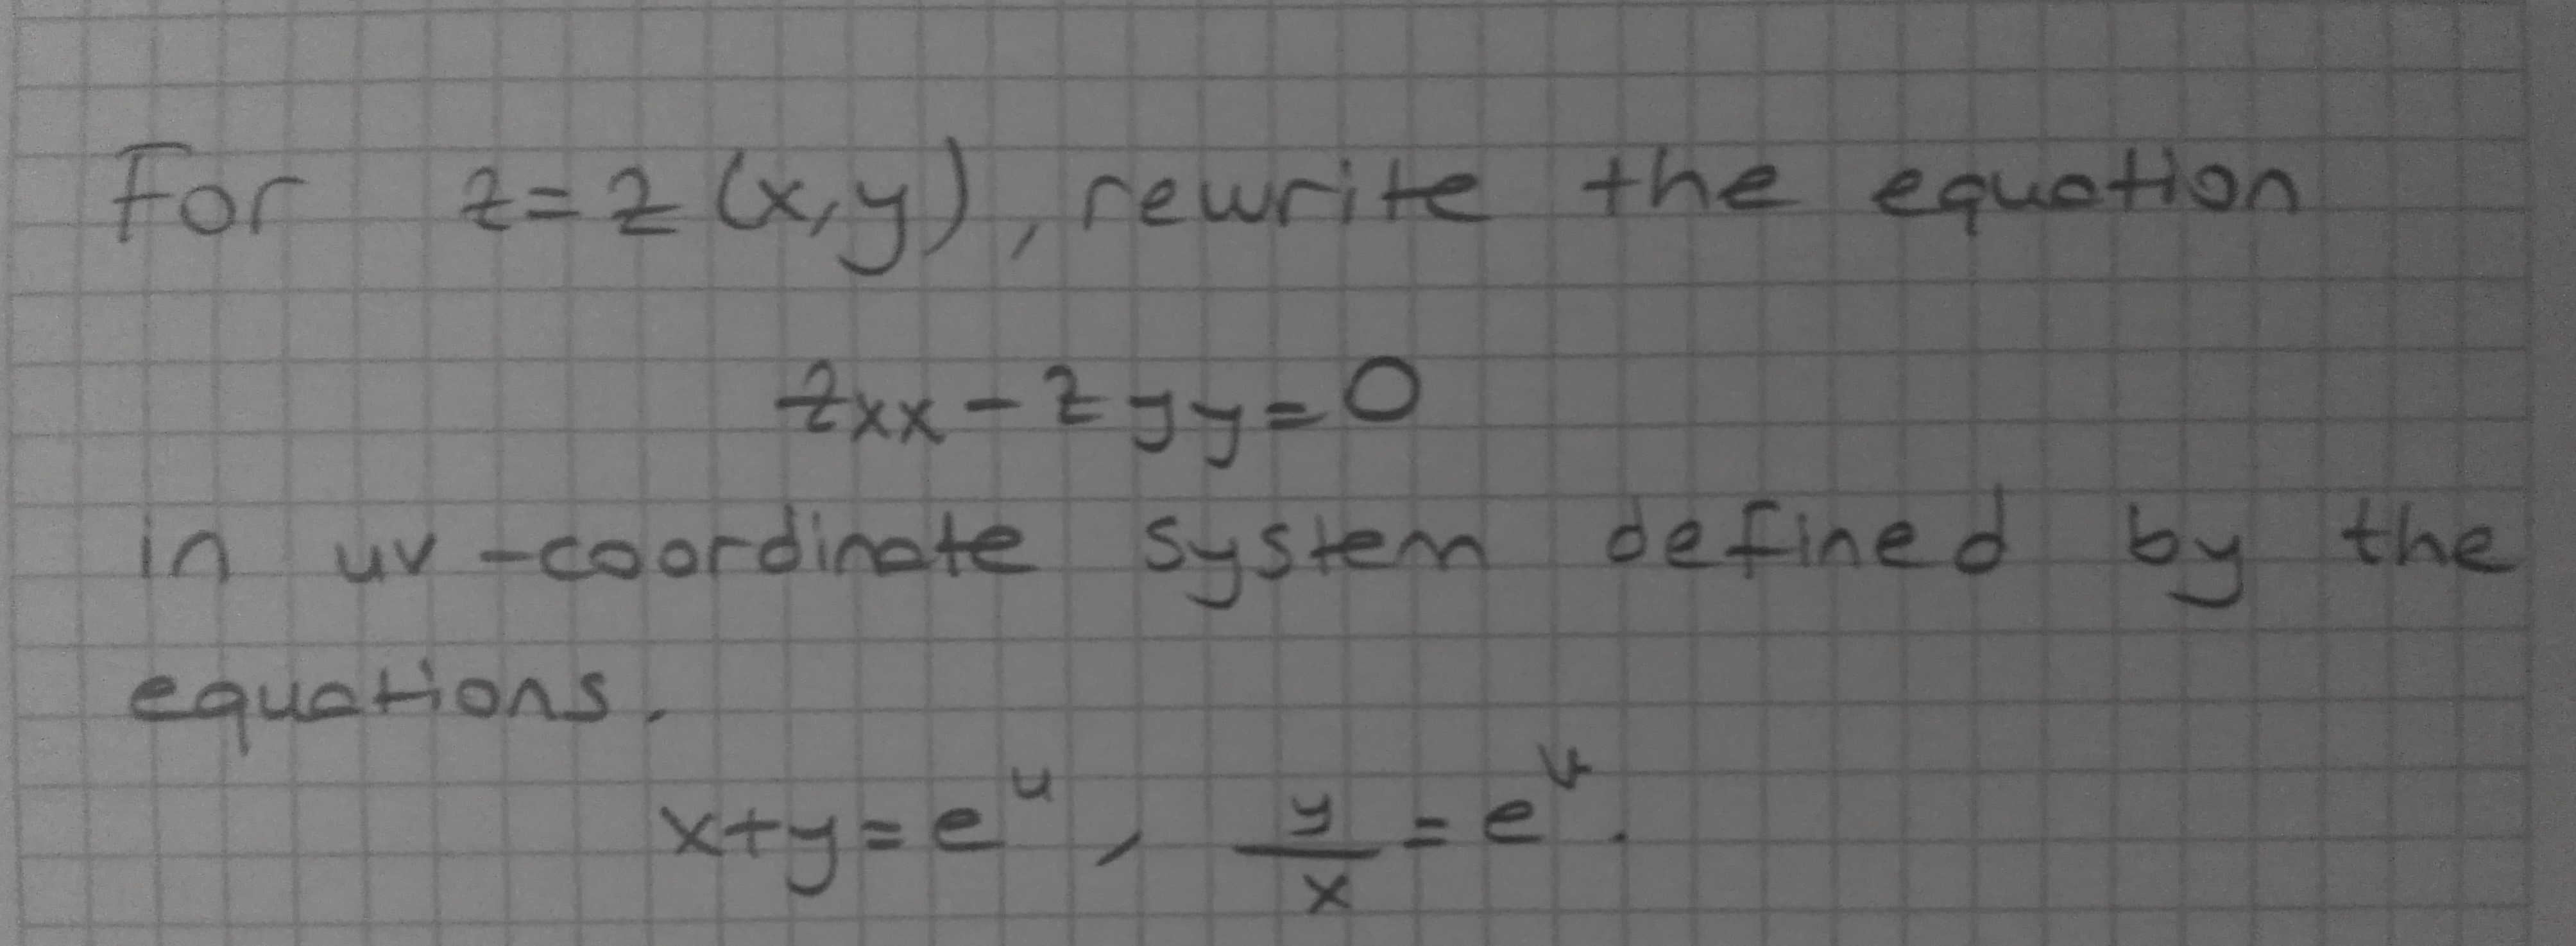 For z=z(x,y), rewrite the equation
zxx-zyy=0
in uv-coordinate system defined by the
equations.
x+y=e^u, y/x=e^v.